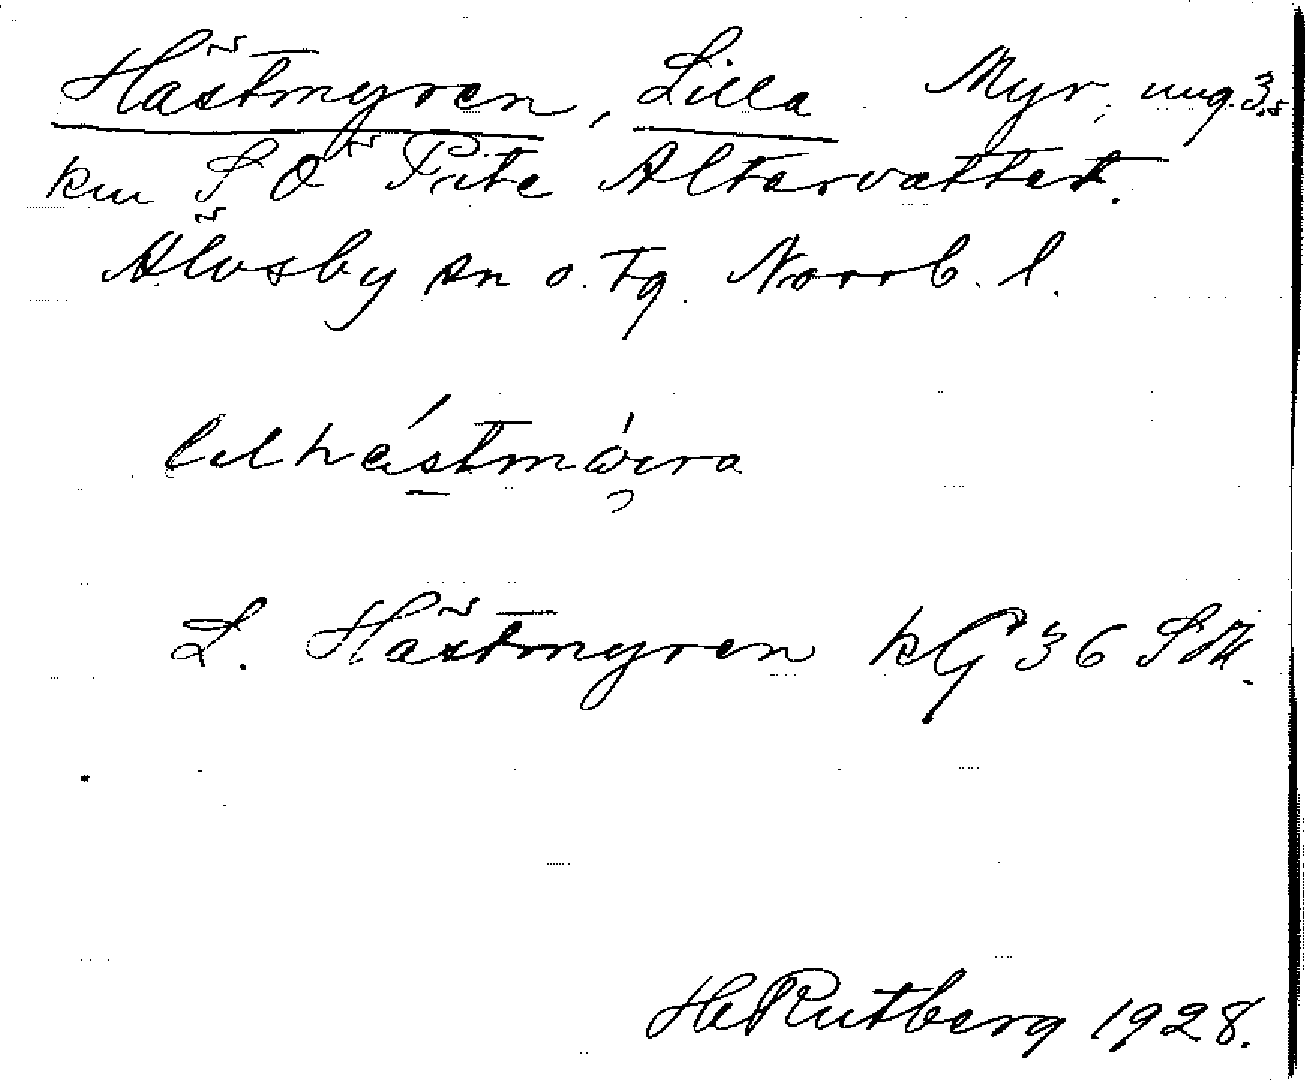 Hästmyren, Lilla Myr, ung. 3,5
km S O Pite Altervattet.
Älvsby sn o. tg. Norrb. l.
lɩlhästmȯɩra
L. Hästmyren kG 36 SM.
H Rutberg 1928.